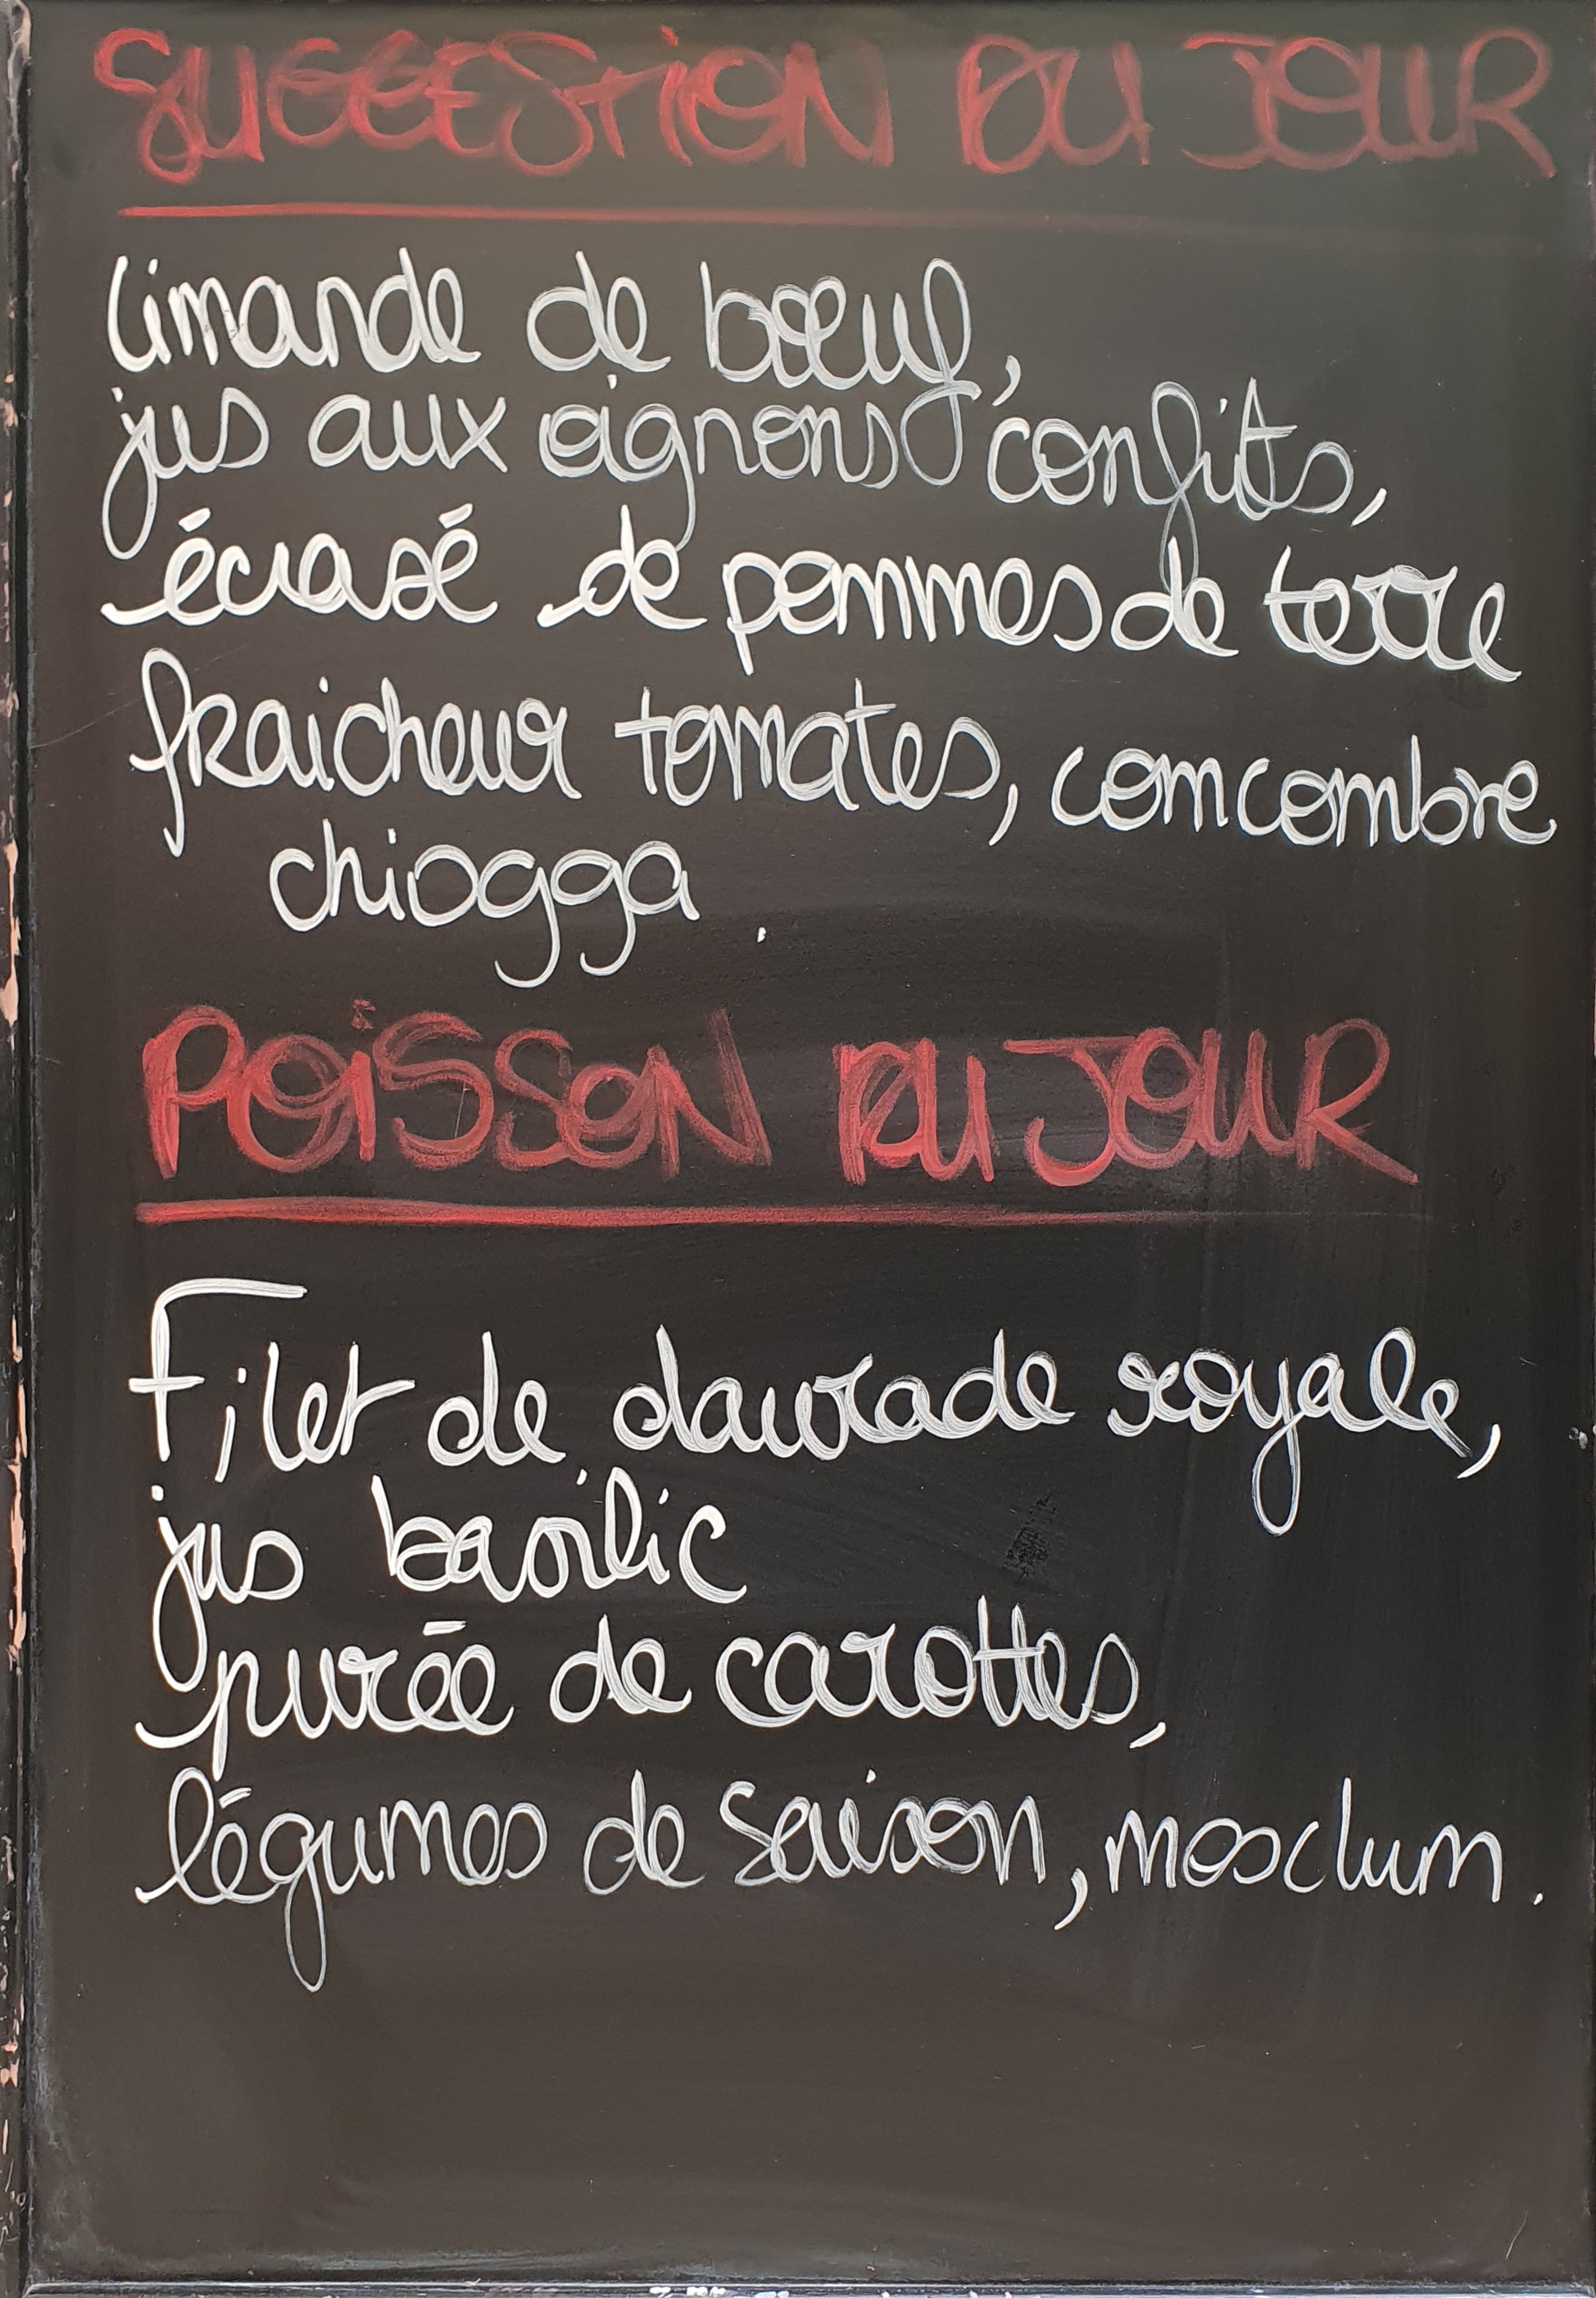 SUGGESTION DU JOUR
limande de bœuf,
jus aux oignons confits,
écrasé de pommes de terre
fraicheur tomates, comcombre
chiogga.
POISSON DU JOUR
Filet de daurade royale,
jus basilic
purée de carottes,
légumes de saison, mesclum.